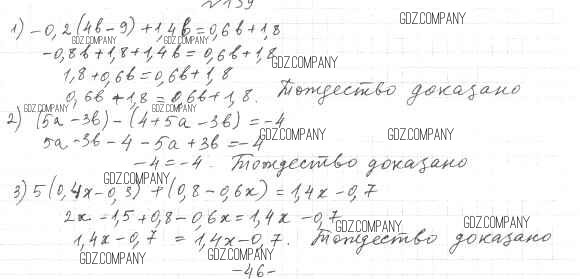 №139
1) -0,2(4b-9)+1,4b=0,6b+1,8
-0,8b+1,8+1,4b=0,6b+1,8
1,8+0,6b=0,6b+1,8
0,6b+1,8=0,6b+1,8. Тождество доказано
2) (5a-3b)-(4+5a-3b)=-4
5a-3b-4-5a+3b=-4
-4=-4. Тождество доказано
3) 5(0,4x-0,3)+(0,8-0,6x)=1,4x-0,7
2x-1,5+0,8-0,6x=1,4x-0,7
1,4x-0,7=1,4x-0,7. Тождество доказано
-46-
GDZ.COMPANY
GDZ.COMPANY
GDZ.COMPANY
GDZ.COMPANY
GDZ.COMPANY
GDZ.COMPANY
GDZ.COMPANY
GDZ.COMPANY
GDZ.COMPANY
GDZ.COMPANY
GDZ.COMPANY
GDZ.COMPANY
GDZ.COMPANY